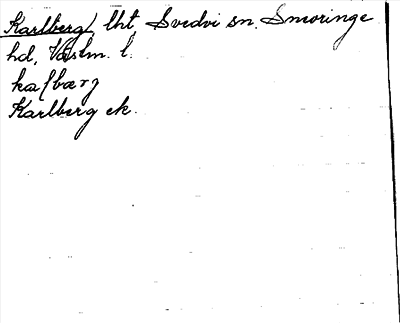 Karlberg, lht, Svedvi sn. Snevringe
hd, Västm. l.
kaſbærj
Karlberg ek.